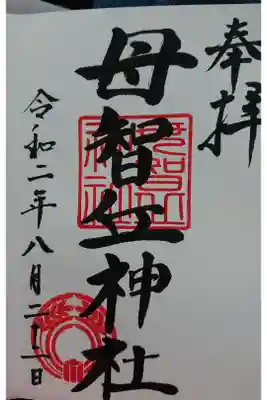 奉拝
母智丘神社
令和二年八月二十二日